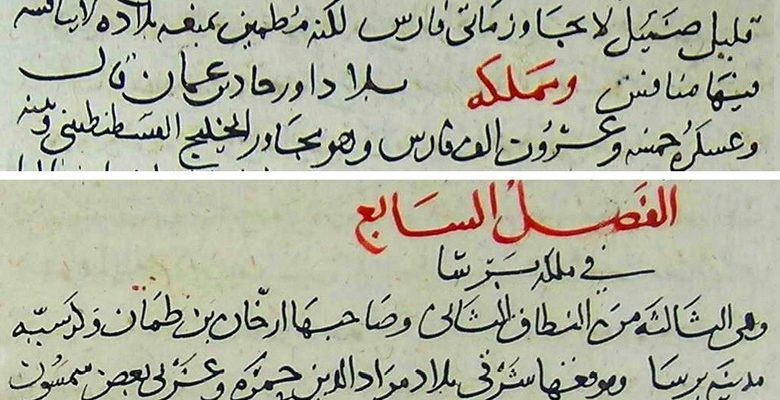 قليل ضئيل لا يجاوز مائتى فارس لكنه مطمئن بمنعه بلاده لا ينافسه
فيها منافس ومملكه بلاد اورخان بن عثمان قال
وعسكره خمسه وعشرون الف فارس وهو مجاور الخليج القسطنطينى وبينه
الفصل السابع
فى مملكه برسا
وهى الثالثه من النطاق الثانى وصاحبها ارخان بن طمان وكرسيه
مدينه برسا وموقعها شرقى بلاد مراد الدين حمزه وغربى بعض سمسون